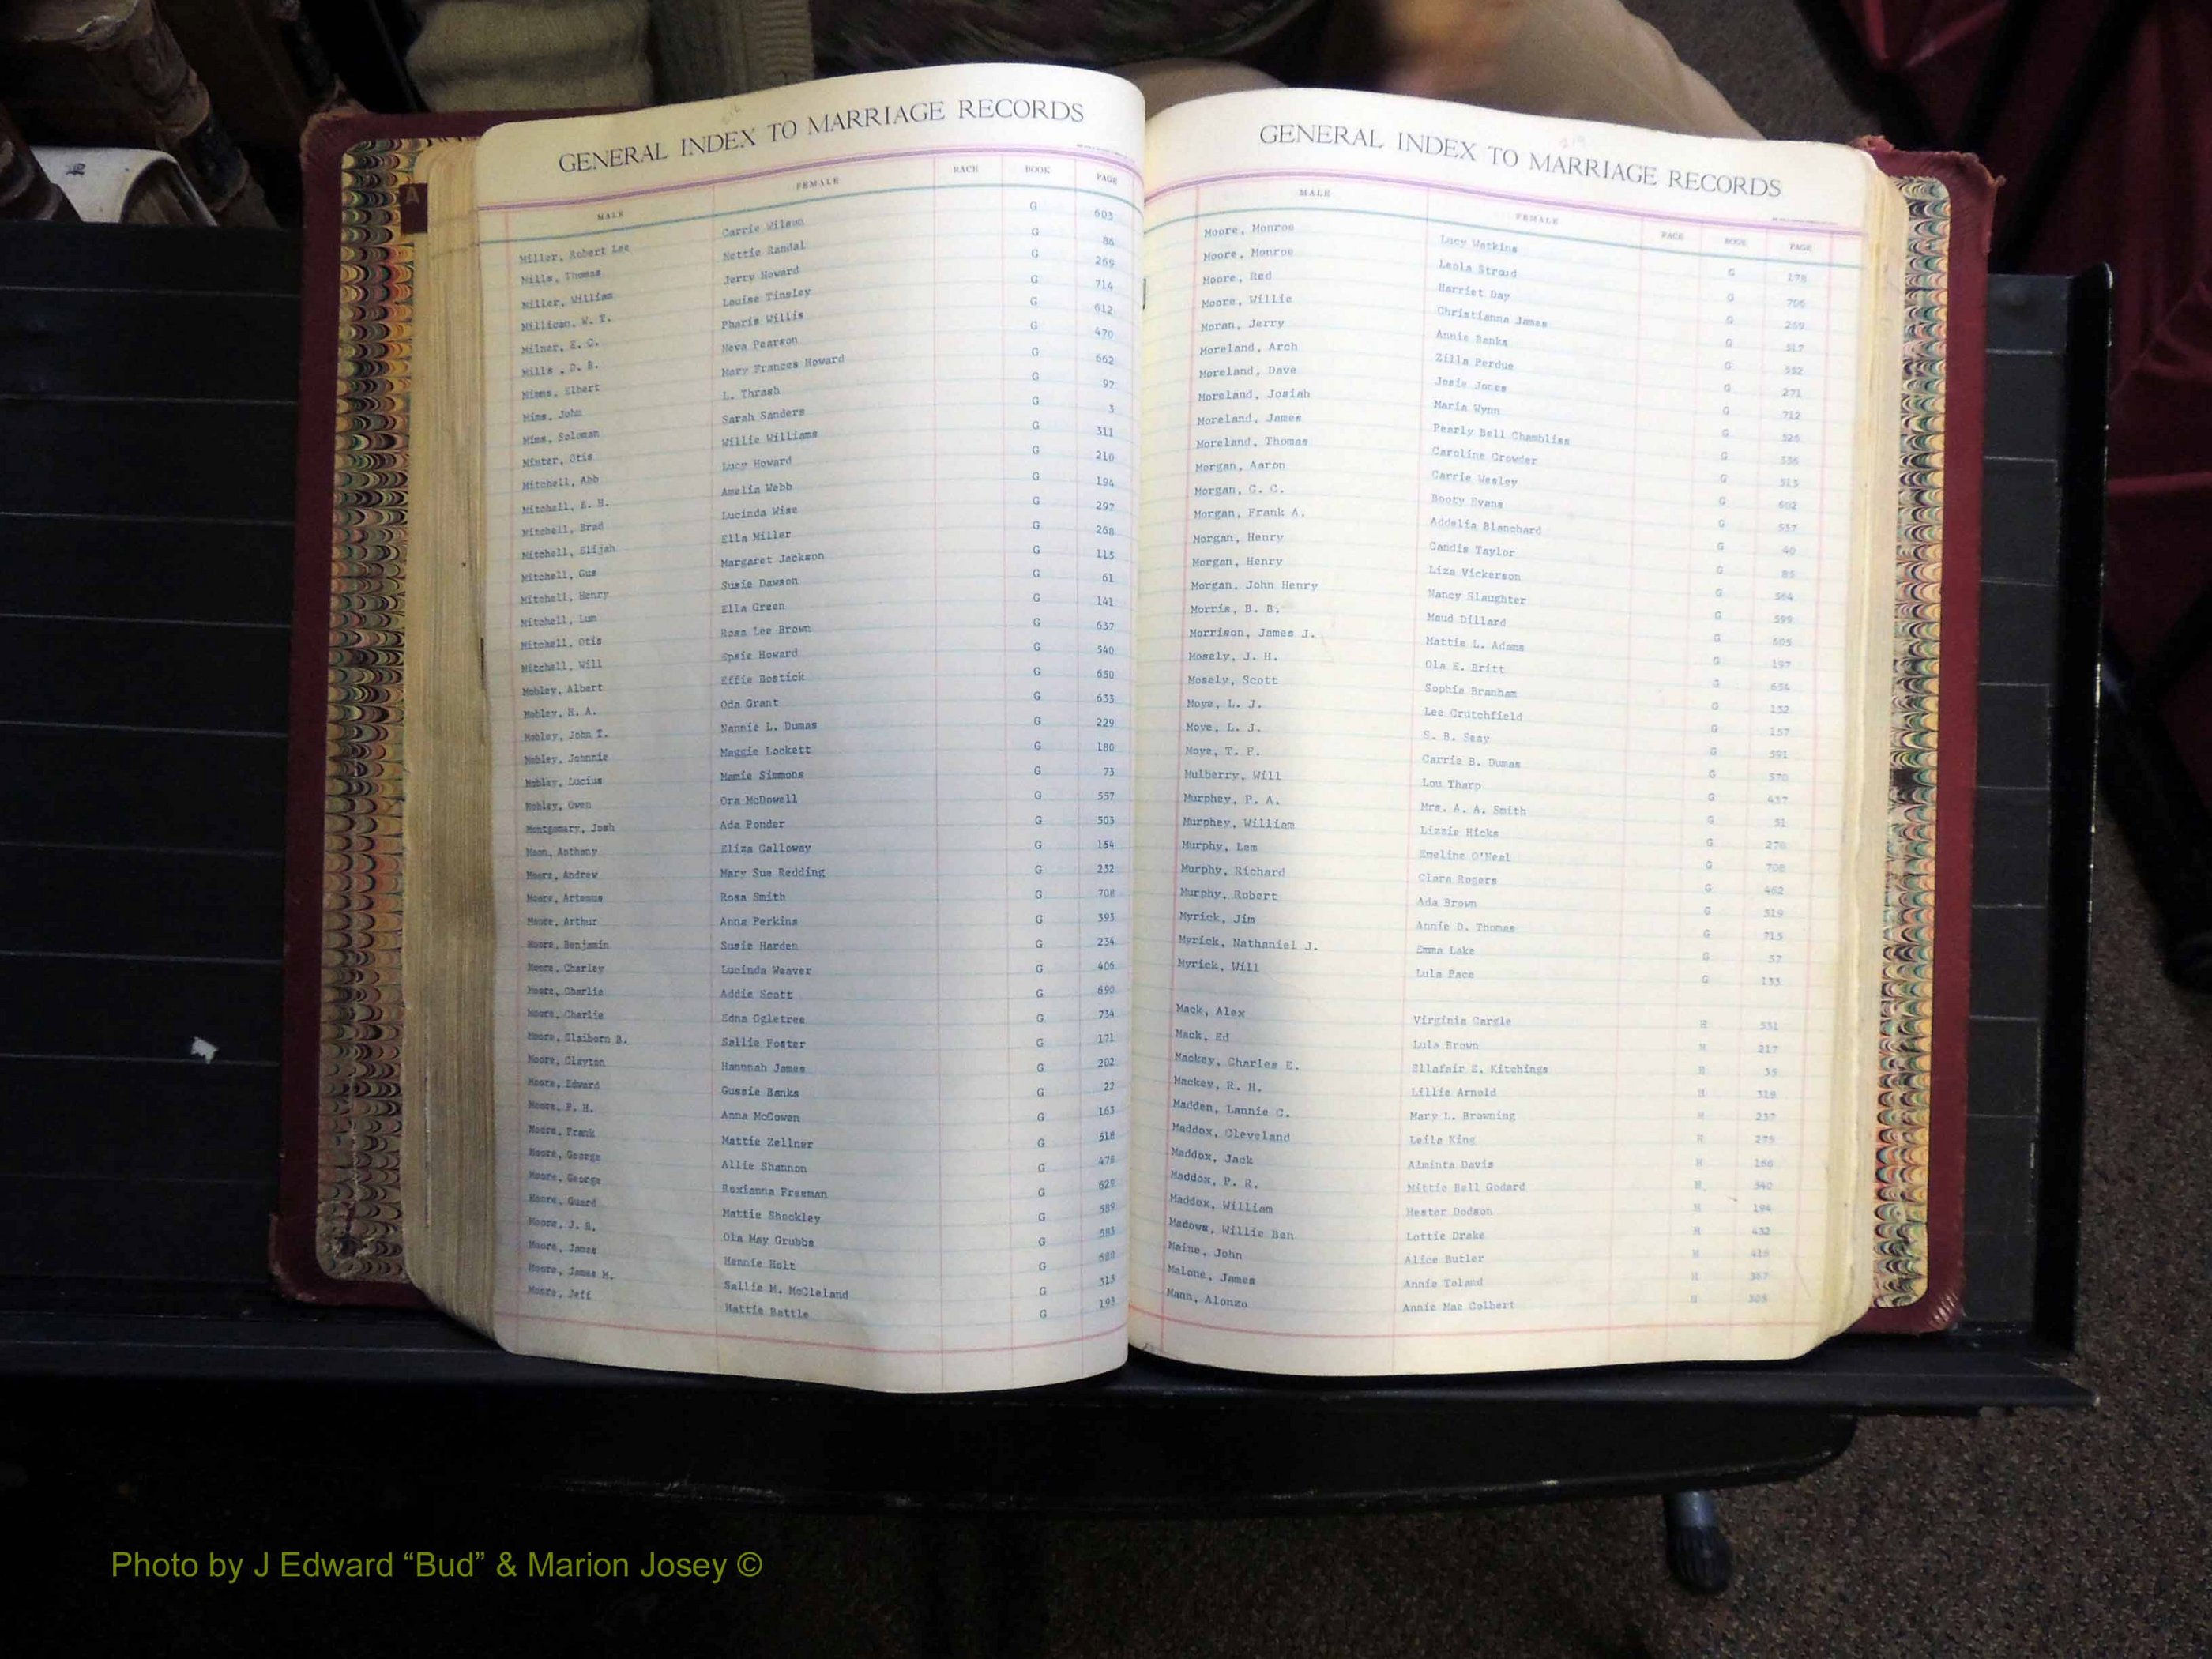 GENERAL INDEX TO MARRIAGE RECORDS
MALE FEMALE RACE BOOK PAGE
Miller, Robert Lee Carrie Wilson G 603
Mills, Thomas Nettie Randal G 86
Miller, William Jerry Howard G 269
Millican, W. T. Louise Tinsley G 714
Milner, E. C. Pharis Willis G 612
Mills , D. B. Neva Pearson G 470
Mimms, Elbert Mary Frances Howard G 662
Mims, John L. Thrash G 97
Mims, Soloman Sarah Sanders G 3
Minter, Otis Willie Williams G 311
Mitchell, Abb Lucy Howard G 210
Mitchell, B. H. Amelia Webb G 194
Mitchell, Brad Lucinda Wise G 297
Mitchell, Elijah Ella Miller G 268
Mitchell, Gus Margaret Jackson G 115
Mitchell, Henry Susie Dawson G 61
Mitchell, Lum Ella Green G 141
Mitchell, Otis Rosa Lee Brown G 637
Mitchell, Will Epsie Howard G 540
Mobley, Albert Effie Bostick G 650
Mobley, H. A. Oda Grant G 633
Mobley, John T. Nannie L. Dumas G 229
Mobley, Johnnie Maggie Lockett G 180
Mobley, Lucius Mamie Simmons G 73
Mobley, Owen Ora McDowell G 557
Montgomery, Josh Ada Ponder G 503
Moon, Anthony Eliza Calloway G 154
Moore, Andrew Mary Sue Redding G 232
Moore, Artemus Rosa Smith G 708
Moore, Arthur Anna Perkins G 393
Moore, Benjamin Susie Harden G 234
Moore, Charley Lucinda Weaver G 406
Moore, Charlie Addie Scott G 690
Moore, Charlie Edna Ogletree G 734
Moore, Claiborn B. Sallie Foster G 171
Moore, Clayton Hannnah James G 202
Moore, Edward Gussie Banks G 22
Moore, F. H. Anna McCowen G 163
Moore, Frank Mattie Zellner G 518
Moore, George Allie Shannon G 478
Moore, George Roxianna Freeman G 629
Moore, Guard Mattie Shockley G 589
Moore, J. B. Ola May Grubbs G 583
Moore, James Hennie Holt G 680
Moore, James M. Sallie M. McCleland G 313
Moore, Jeff Hattie Battle G 193
GENERAL INDEX TO MARRIAGE RECORDS
MALE FEMALE RACE BOOK PAGE
Moore, Monroe Lucy Watkins G 178
Moore, Monroe Leola Stroud G 706
Moore, Red Harriet Day G 259
Moore, Willie Christianna James G 517
Moran, Jerry Annie Banks G 552
Moreland, Arch Zilla Perdue G 271
Moreland, Dave Josie Jones G 712
Moreland, Josiah Maria Wynn G 526
Moreland, James Pearly Bell Chambliss G 336
Moreland, Thomas Caroline Crowder G 513
Morgan, Aaron Carrie Wesley G 602
Morgan, C. C. Booty Evans G 537
Morgan, Frank A. Addelia Blanchard G 40
Morgan, Henry Candis Taylor G 85
Morgan, Henry Liza Vickerson G 564
Morgan, John Henry Nancy Slaughter G 599
Morris, B. B. Maud Dillard G 605
Morrison, James J. Mattie L. Adams G 197
Mosely, J. H. Ola E. Britt G 654
Mosely, Scott Sophia Branham G 132
Moye, L. J. Lee Crutchfield G 157
Moye, L. J. S. B. Seay G 591
Moye, T. F. Carrie B. Dumas G 570
Mulberry, Will Lou Tharp G 437
Murphey, P. A. Mrs. A. A. Smith G 51
Murphey, William Lizzie Hicks G 278
Murphy, Lem Emeline O'Neal G 708
Murphy, Richard Clara Rogers G 462
Murphy, Robert Ada Brown G 319
Myrick, Jim Annie D. Thomas G 715
Myrick, Nathaniel J. Emma Lake G 57
Myrick, Will Lula Pace G 133
Mack, Alex Virginia Cargle H 531
Mack, Ed Lula Brown H 217
Mackey, Charles E. Ellafair E. Kitchings H 35
Mackey, R. H. Lillie Arnold H 318
Madden, Lannie C. Mary L. Browning H 237
Maddox, Cleveland Leila King H 275
Maddox, Jack Alminta Davis H 166
Maddox, P. R. Mittie Bell Godard H 340
Maddox, William Hester Dodson H 194
Madows, Willie Ben Lottie Drake H 432
Maine, John Alice Butler H 418
Malone, James Annie Toland H 367
Mann, Alonzo Annie Mae Colbert H 305
Photo by J Edward “Bud” & Marion Josey ©